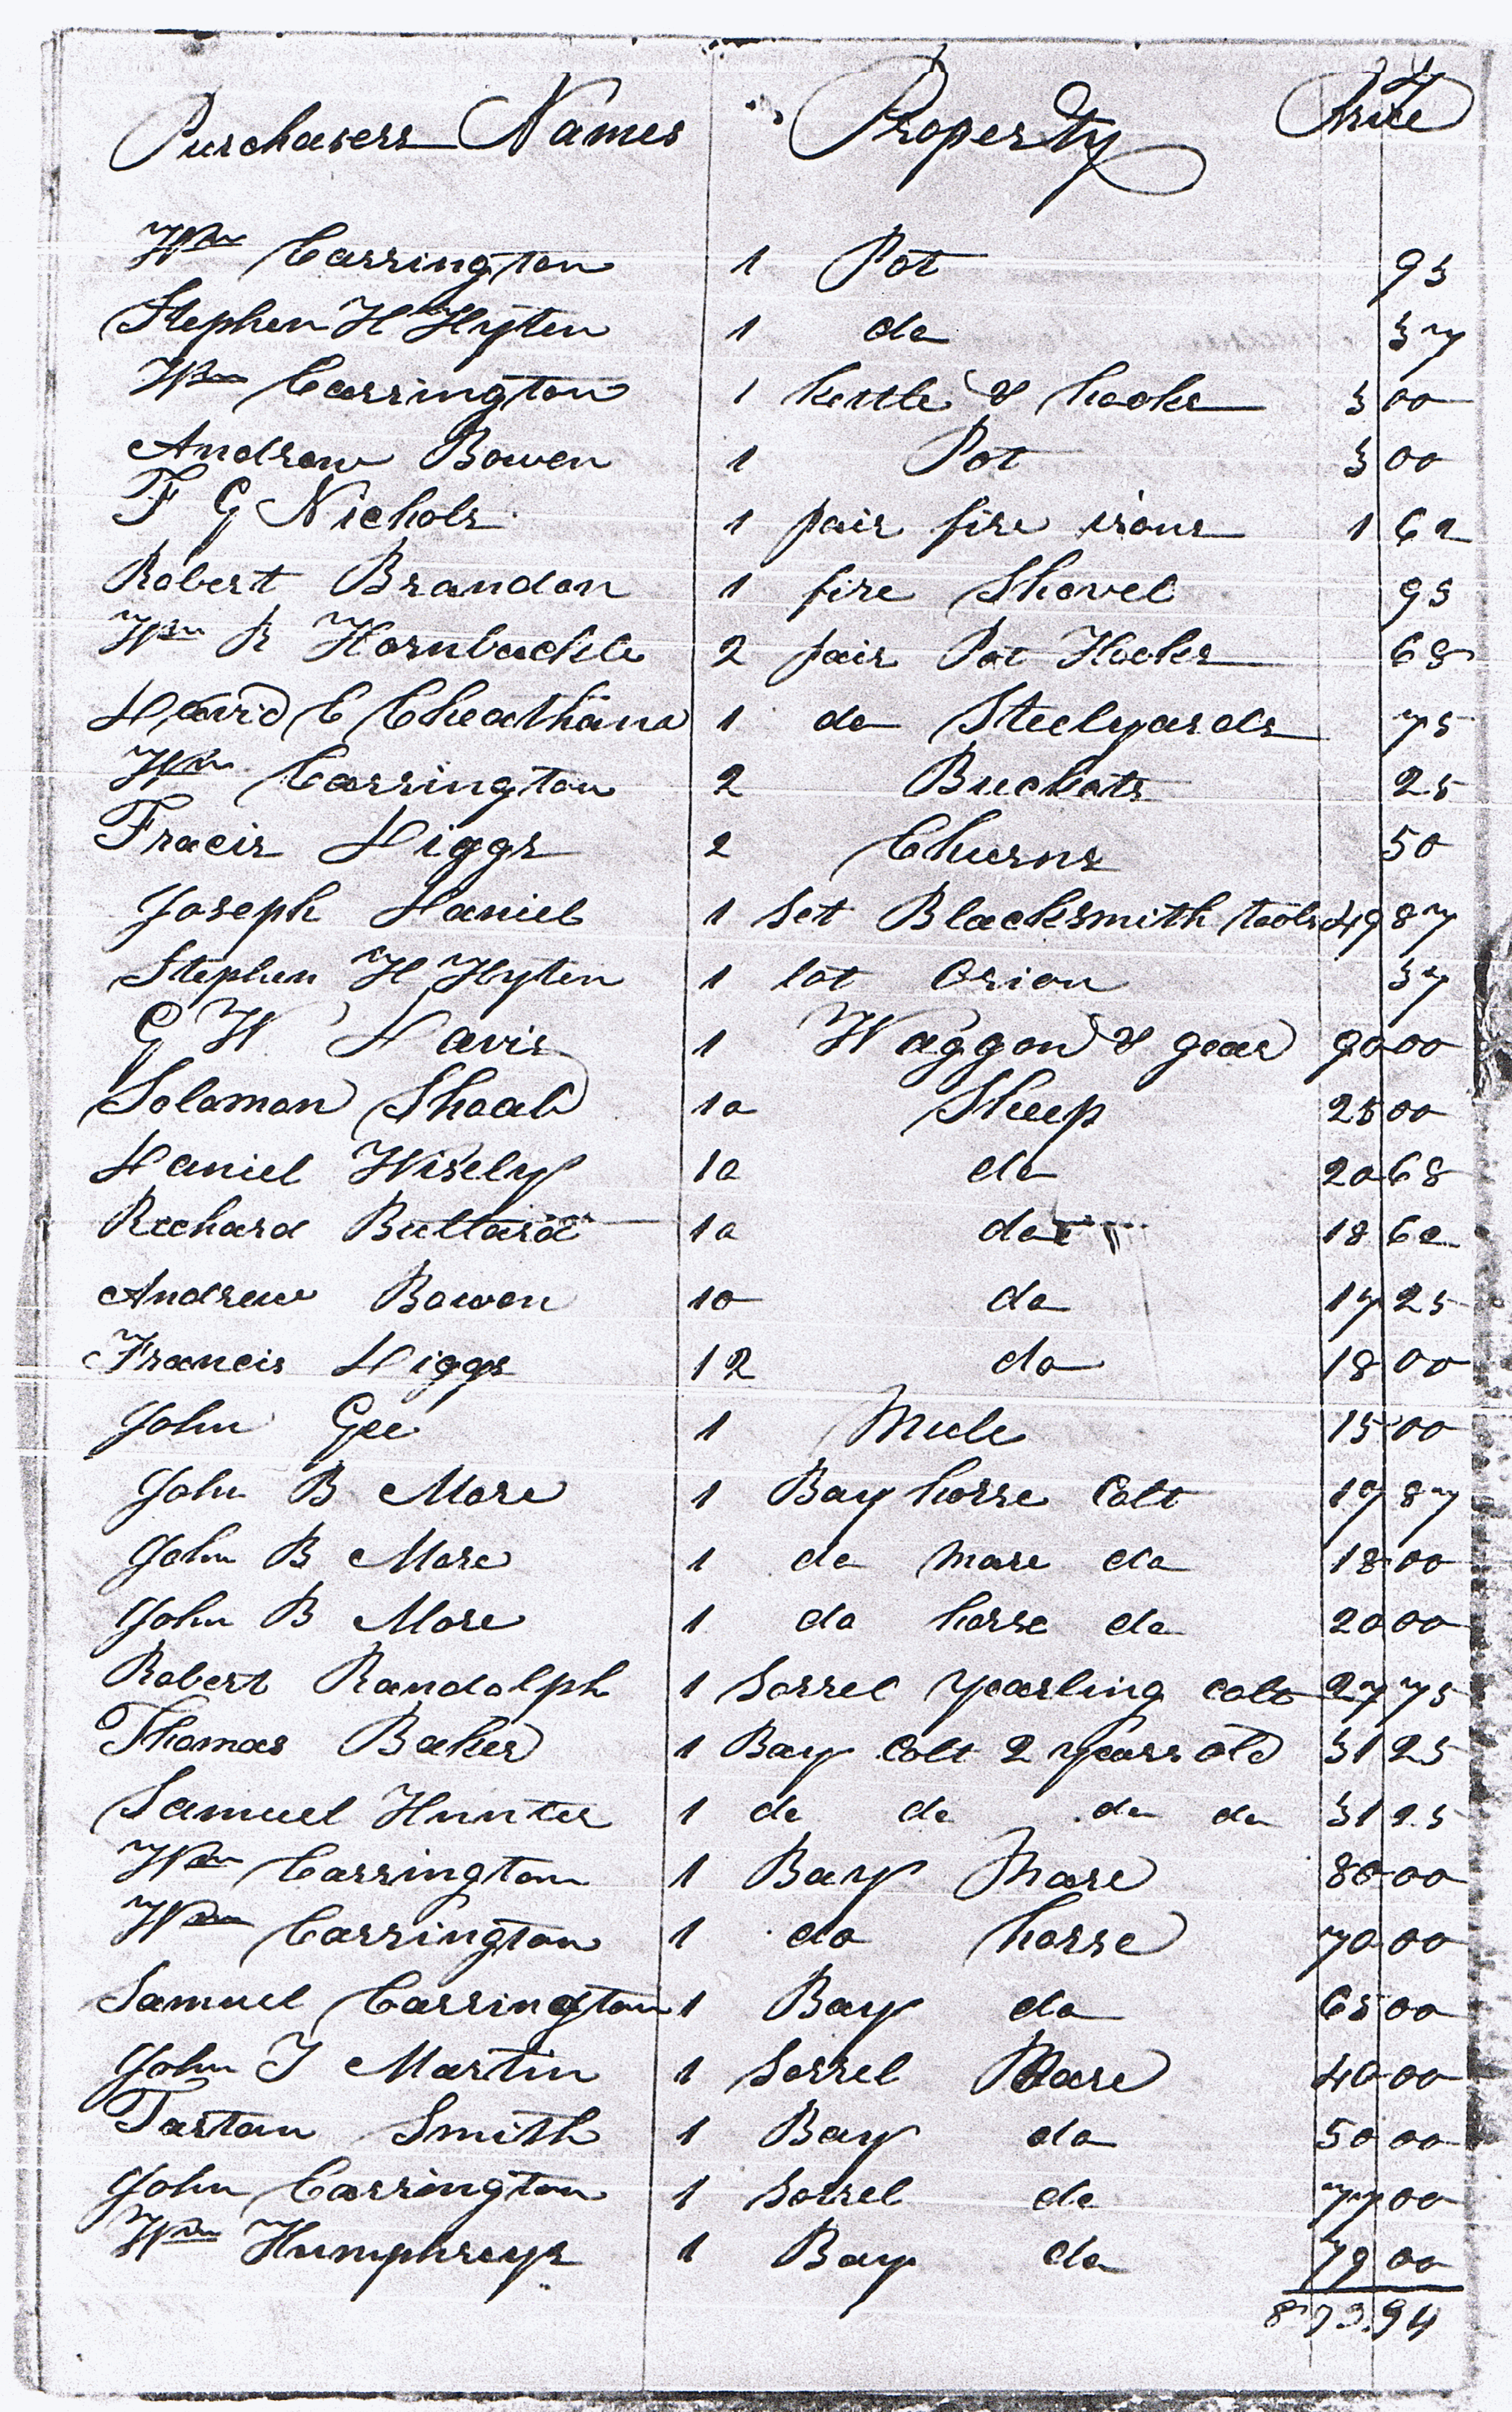 Purchasers Names Property Price
Wm Carrington 1 Pot 93
Stephen H Hyten 1 do 37
Wm Carrington 1 Kettle & hooks 3 00
Andrew Bowen 1 Pot 3 00
F G Nichols 1 pair fire irons 1 62
Robert Brandon 1 fire Shovel 93
Wm R Hornbuckle 2 pair Pot Hooks 68
David C Cheatham 1 do Steelyards 75
Wm Carrington 2 Buckets 25
Fracis Higgs 2 Churns 50
Joseph Daniel 1 Set Blacksmith tools 49 87
Stephen H Hyten 1 lot Orion 37
G W Davis 1 Waggon & gear 90 00
Solomon Shoab 10 Sheep 25 00
Daniel Wisely 10 do 20 68
Richard Bullard 10 do 18 62
Andrew Bowen 10 do 17 25
Francis Higgs 12 do 18 00
John Gee 1 Mule 15 00
John B More 1 Bay horse Colt 19 87
John B More 1 do mare do 18 00
John B More 1 do horse do 20 00
Robert Randolph 1 Sorrel yearling colt 27 75
Thomas Baker 1 Bay Colt 2 years old 31 25
Samuel Hunter 1 do do do do 31 25
Wm Carrington 1 Bay Mare 80 00
Wm Carrington 1 do horse 70 00
Samuel Carrington 1 Bay do 65 00
John T Martin 1 Sorrel Mare 40 00
Tartan Smith 1 Bay do 50 00
John Carrington 1 Sorrel do 77 00
Wm Humphreys 1 Bay do 79 00